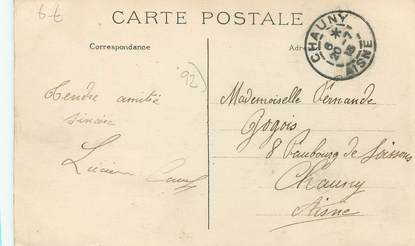 6-€
CARTE POSTALE
Correspondance
Adre
CHAUNY
AISNE
(92)
Tendre amitié
sincère
Lucien
Mademoiselle Fernande
Gogois
8 Faubourg de Soissons
Chauny
Aisne